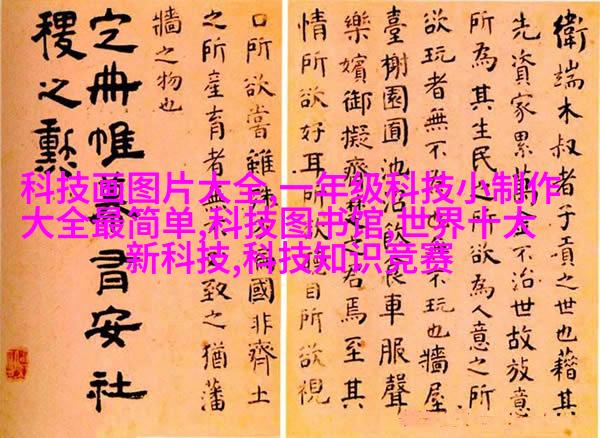 科技画图片大全,一年级科技小制作
大全最简单,科技图书馆,世界十大
新科技,科技知识竞赛
衛端木叔者子貢之世也藉其
先資家累萬不治世故放意
所為其生民之所欲為人意之所
欲玩者無不也不玩也牆屋
臺榭園囿池沼飲食車服聲
樂嬪御擬齊楚之君焉至其
情所欲好耳所欲目所欲視
口所欲嘗雖殊偏國非齊土
之所產育者無不致之猶藩
牆之物也
定冊帷幕有安社
稷之勳